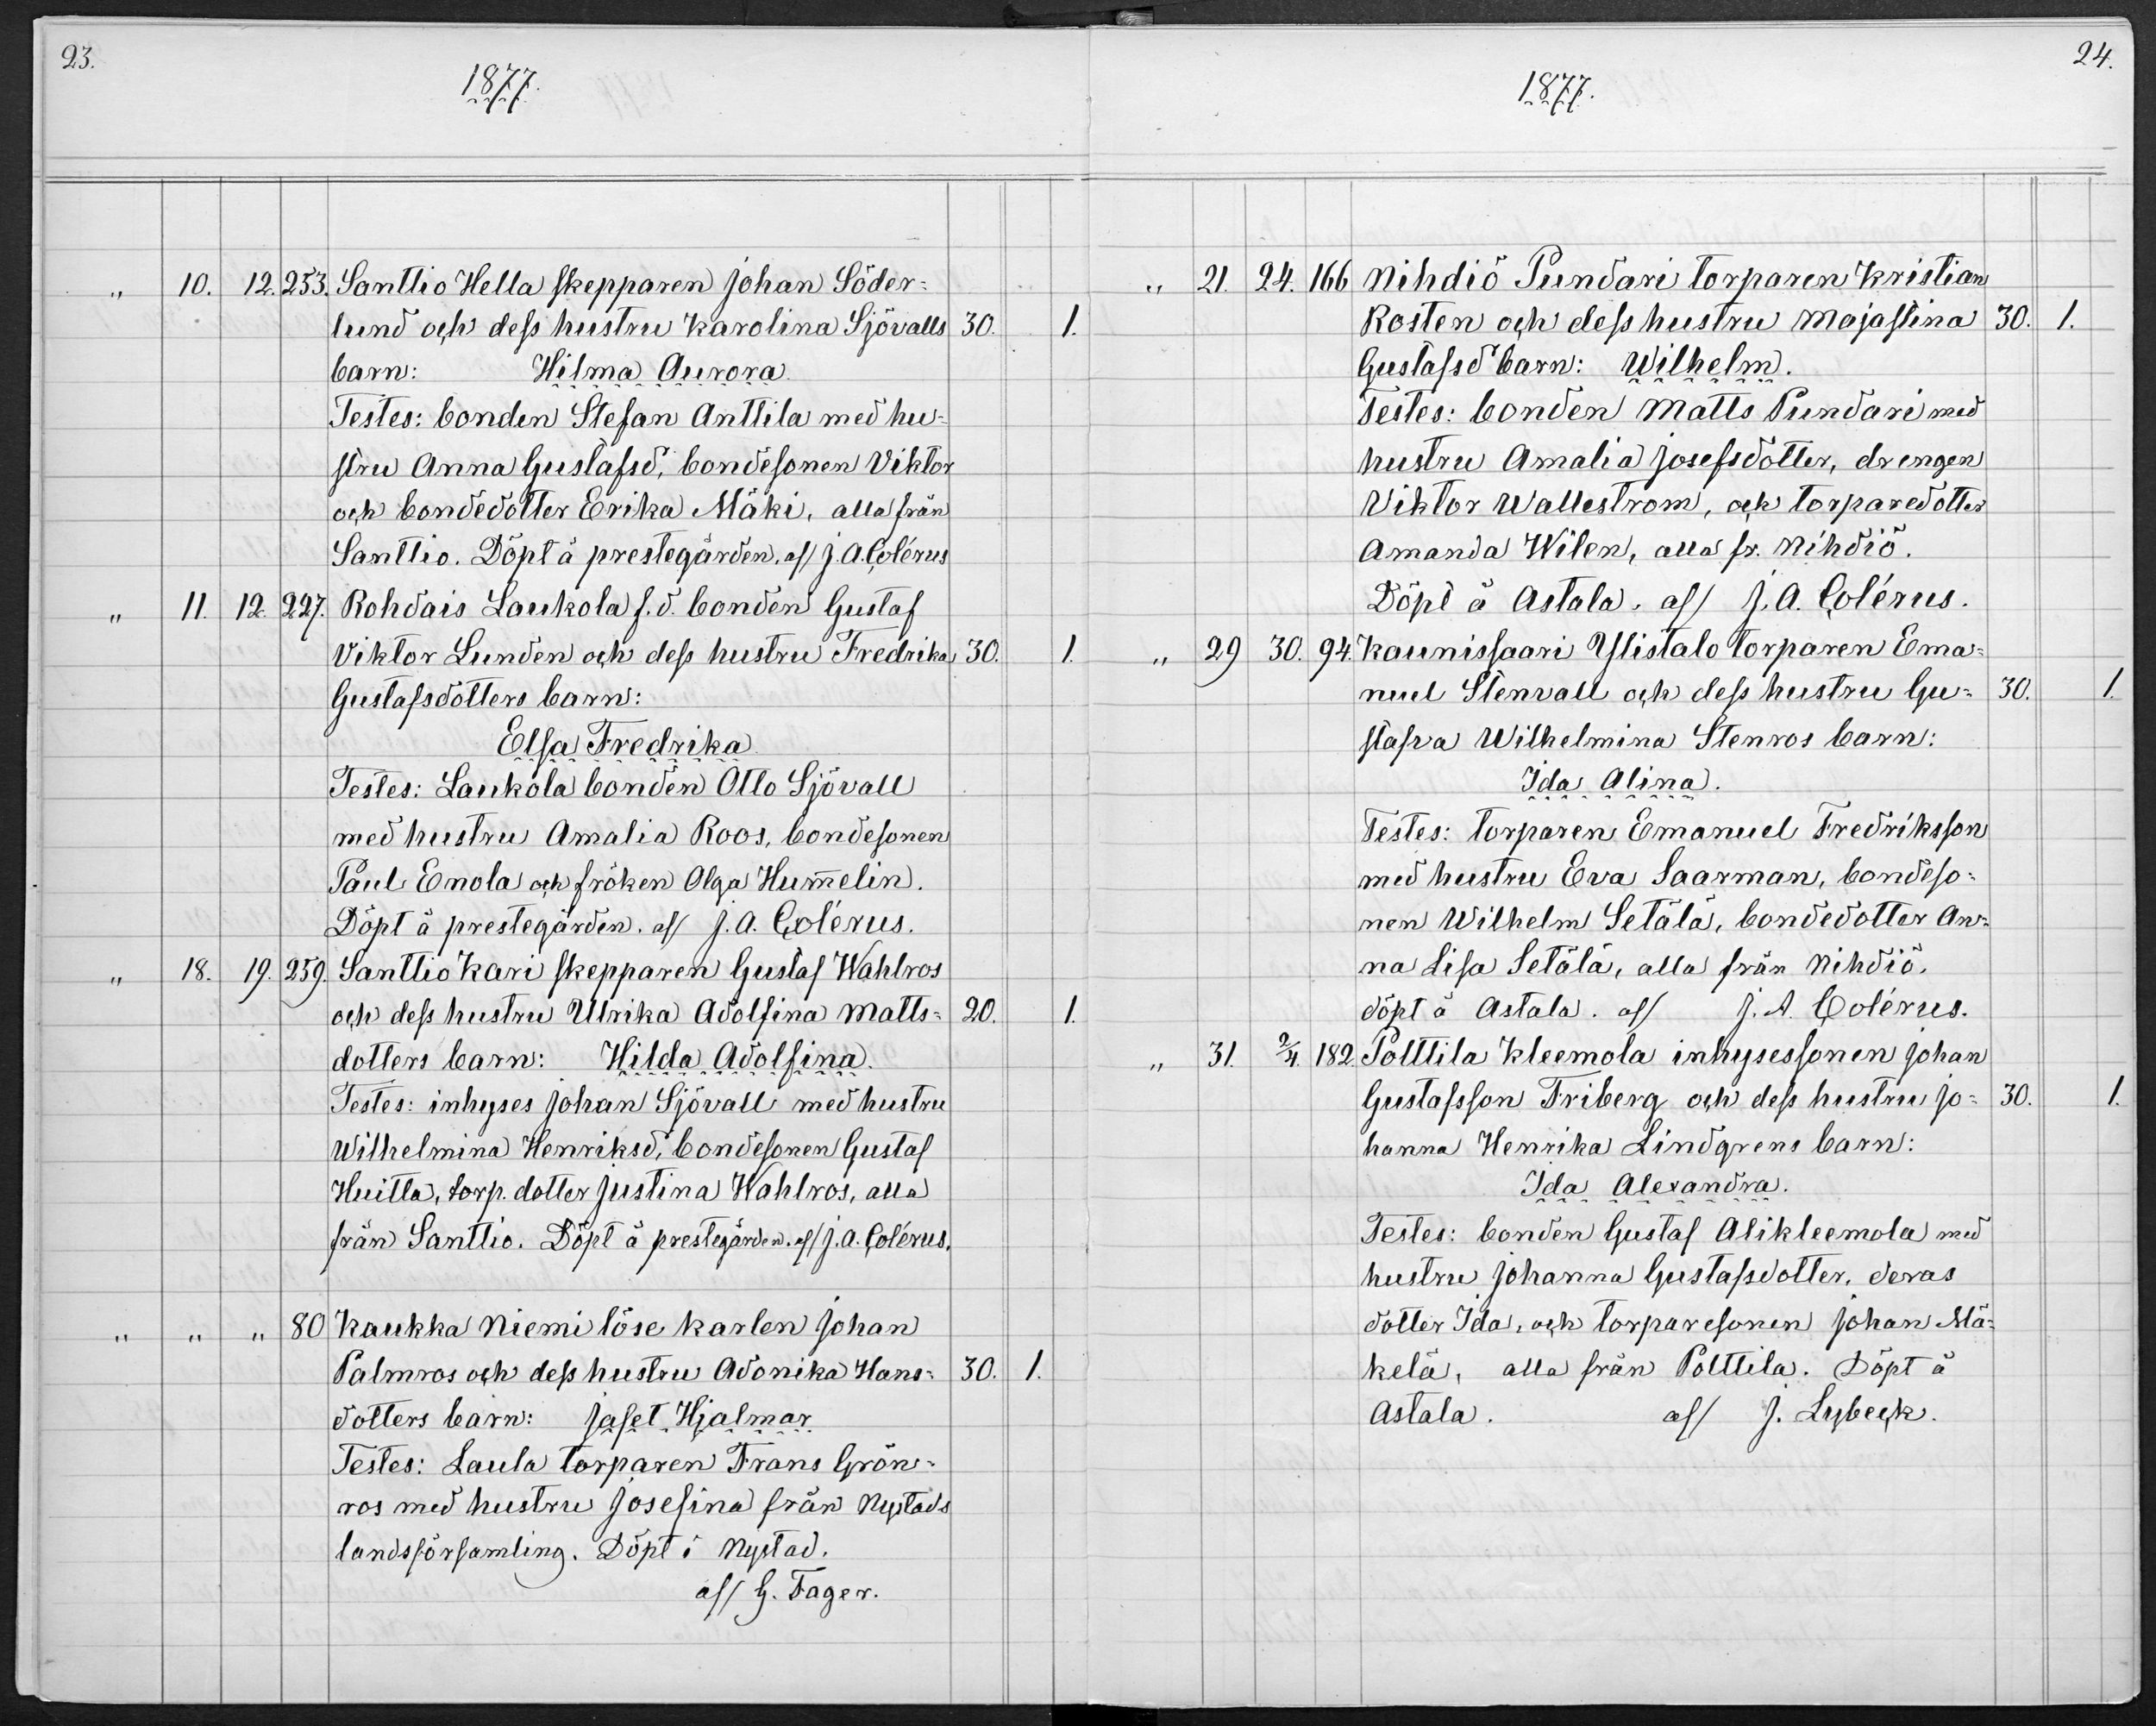 23.
1877.
" 10. 12. 253. Santtio Hella skepparen Johan Söder=
lund och dess hustru Karolina Sjövalls 30. 1.
barn: Hilma Aurora
Testes: bonden Stefan Anttila med hu=
stru Anna Gustafsd., bondesonen Viktor
och bondedotter Erika Mäki, alla från
Santtio. Döpt å prestegården. af/ J. A. Colérus
" 11. 12. 227. Rohdais Laukola f. d. bonden Gustaf
Viktor Lunden och dess hustru Fredrika 30. 1.
Gustafsdotters barn:
Elsa Fredrika
Testes: Laukola bonden Otto Sjövall
med hustru Amalia Roos, bondesonen
Paul Enola och fröken Olga Hum̄elin.
Döpt å prestegården. af/ J. A. Colérus.
" 18. 19. 259. Santtio Kari skepparen Gustaf Wahlros
och dess hustru Ulrika Adolfina Matts= 20. 1.
dotters barn: Hilda Adolfina.
Testes: inhyses Johan Sjövall med hustru
Wilhelmina Henriksd., bondesonen Gustaf
Huitla, torp. dotter Justina Wahlros, alla
från Santtio. Döpt å prestegården. af/ J. A. Colérus.
" " " 80 Kaukka Niemi löse karlen Johan
Palmros och dess hustru Adonika Hans= 30. 1.
dotters barn: Jafet Hjalmar
Testes: Laula torparen Frans Grön=
ros med hustru Josefina från Nystads
landsförsamling. Döpt i Nystad.
af/ G. Fager.
24.
1877.
" 21. 24. 166 Nihdiö Pundari torparen Kristian
Rosten och dess hustru Majastina 30. 1.
Gustafsd barn: Wilhelm.
Testes: bonden Matts Pundari med
hustru Amalia Josefsdotter, drengen
Viktor Wallestrom, och torparedotter
Amanda Wilen, alla fr. Nihdiö.
Döpt å Astala. af/ J. A. Colérus.
" 29 30. 94. Kaunissaari Ylistalo torparen Ema=
nuel Stenvall och dess hustru Gu= 30. 1.
stafva Wilhelmina Stenros barn:
Ida Alina.
Testes: torparen Emanuel Fredriksson
med hustru Eva Saarman, bondeso=
nen Wilhelm Setälä, bondedotter An=
na Lisa Setälä, alla från Nihdiö.
döpt å Astala. af/ J. A. Colérus.
" 31. 2/4. 182. Polttila Kleemola inhysessonen Johan
Gustafsson Friberg och dess hustru Jo= 30. 1.
hanna Henrika Lindgrens barn:
Ida Alexandra.
Testes: bonden Gustaf Alikleemola med
hustru Johanna Gustafsdotter, deras
dotter Ida, och torparesonen Johan Mä=
kelä, alla från Polttila. Döpt å
Astala. af/ J. Lybeck.